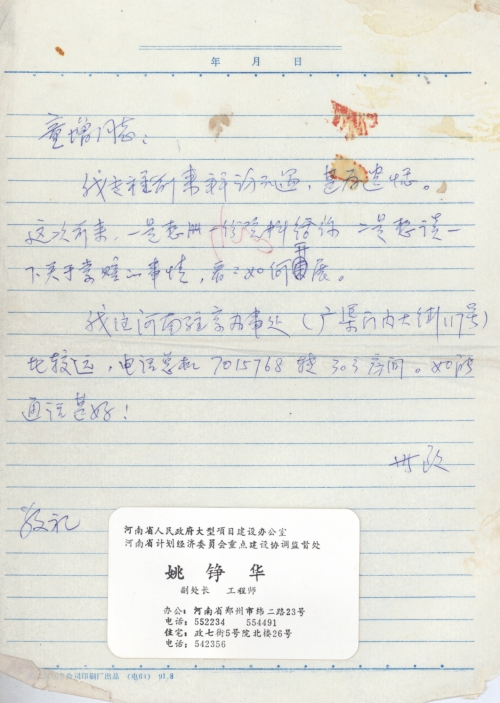 年 月 日
童增同志：
我专程前来拜访不遇，甚为遗憾。
这次前来，一是想 一份资料给你 二是想谈一
下关于索赔的事情，看看如何开展。
我住河南驻京办事处（广渠门内大街117号）
比较远，电话总机 7015768 转 303 房间。如能
通话甚好！
敬礼
河南省人民政府大型项目建设办公室
河南省计划经济委员会重点建设协调监督处
姚 铮 华
副处长 工程师
办公：河南省郑州市纬二路23号
电话：552234 554491
住宅：政七街5号院北楼26号
电话：542356
公司印刷厂出品 （电81） 91.8